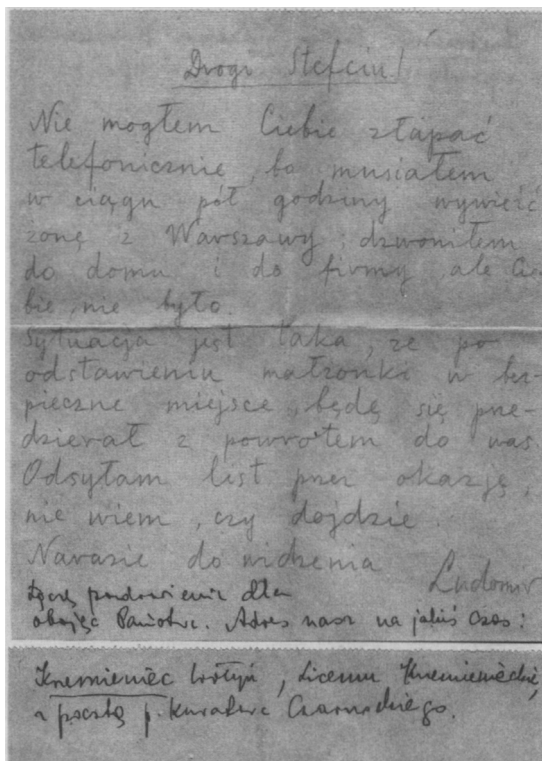 Drogi Stefciu!
Nie mogłem Ciebie złapać
telefonicznie, bo musiałem
w ciągu pół godziny wywieźć
żonę z Warszawy; dzwoniłem
do domu i do firmy ale Cie-
bie nie było.
Sytuacja jest taka, że po
odstawieniu małżonki w bez-
pieczne miejsce, będę się prze-
dzierał z powrotem do was.
Odsyłam list przez okazję,
nie wiem, czy dojdzie.
Narazie do widzenia
Ludomir
Łączę pozdrowienia dla
obojga Państwa. Adres nasz na jakiś czas:
Krzemieniec Wołyń, Liceum Krzemienieckie,
p. Kuratora Czarnockiego.